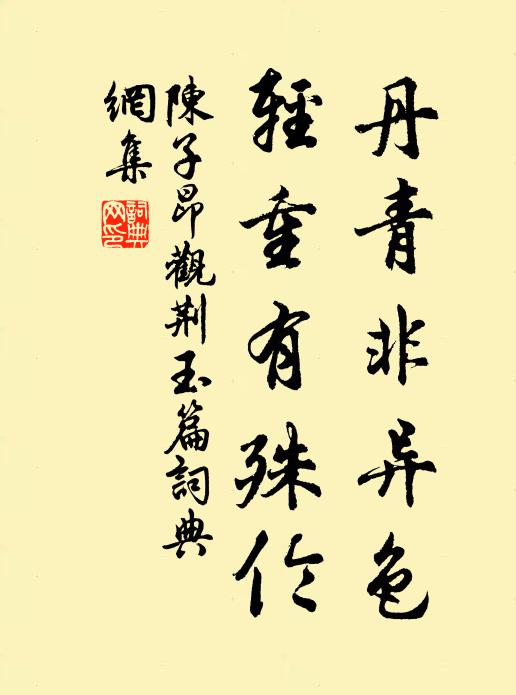 丹青非异色
輕重有殊伦
陳子昂觀荆玉篇詞典
網集
詞典網印